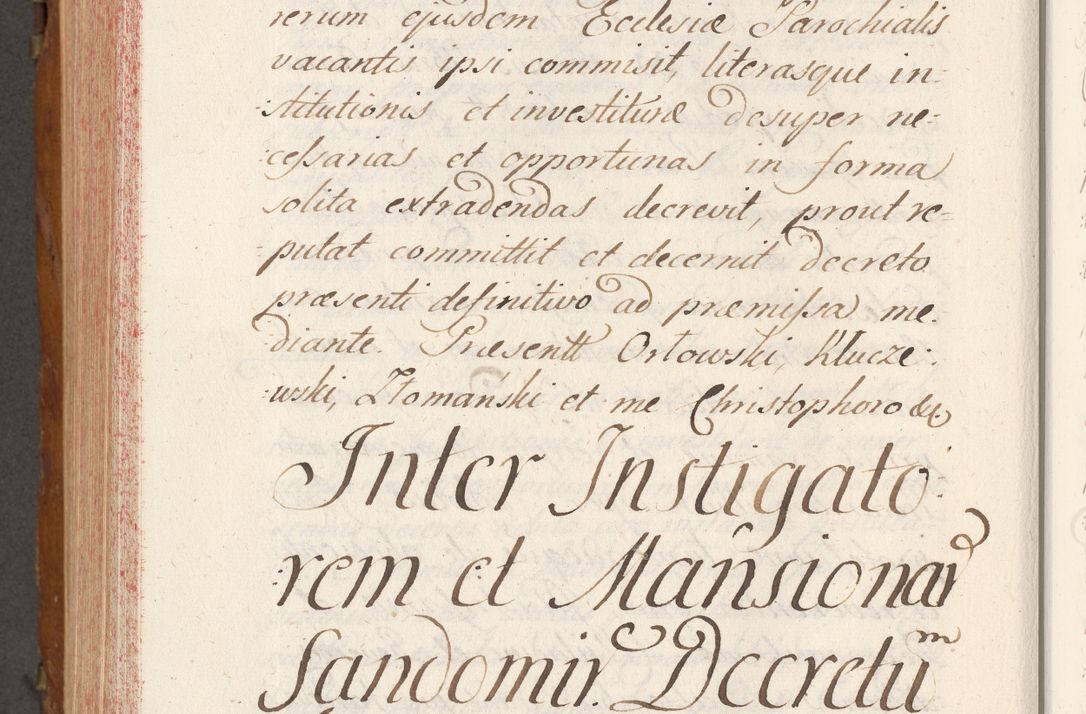 rerum ejusdem Ecclesiæ Parochialis
vacantis ipsi commisit, literasque in:
:stitutionis et investituræ desuper ne:
:cessarias et opportunas in forma
solita extradendas decrevit, prout re=
:putat committit et decernit decreto
præsenti definitivo ad præmissa me:
:diante. Præsentt Orłowski, Klucze:
:wski, Złomański et me Christophoro &c
Inter Instigato:
:rem et Mansionar
Sandomir. Decretũm